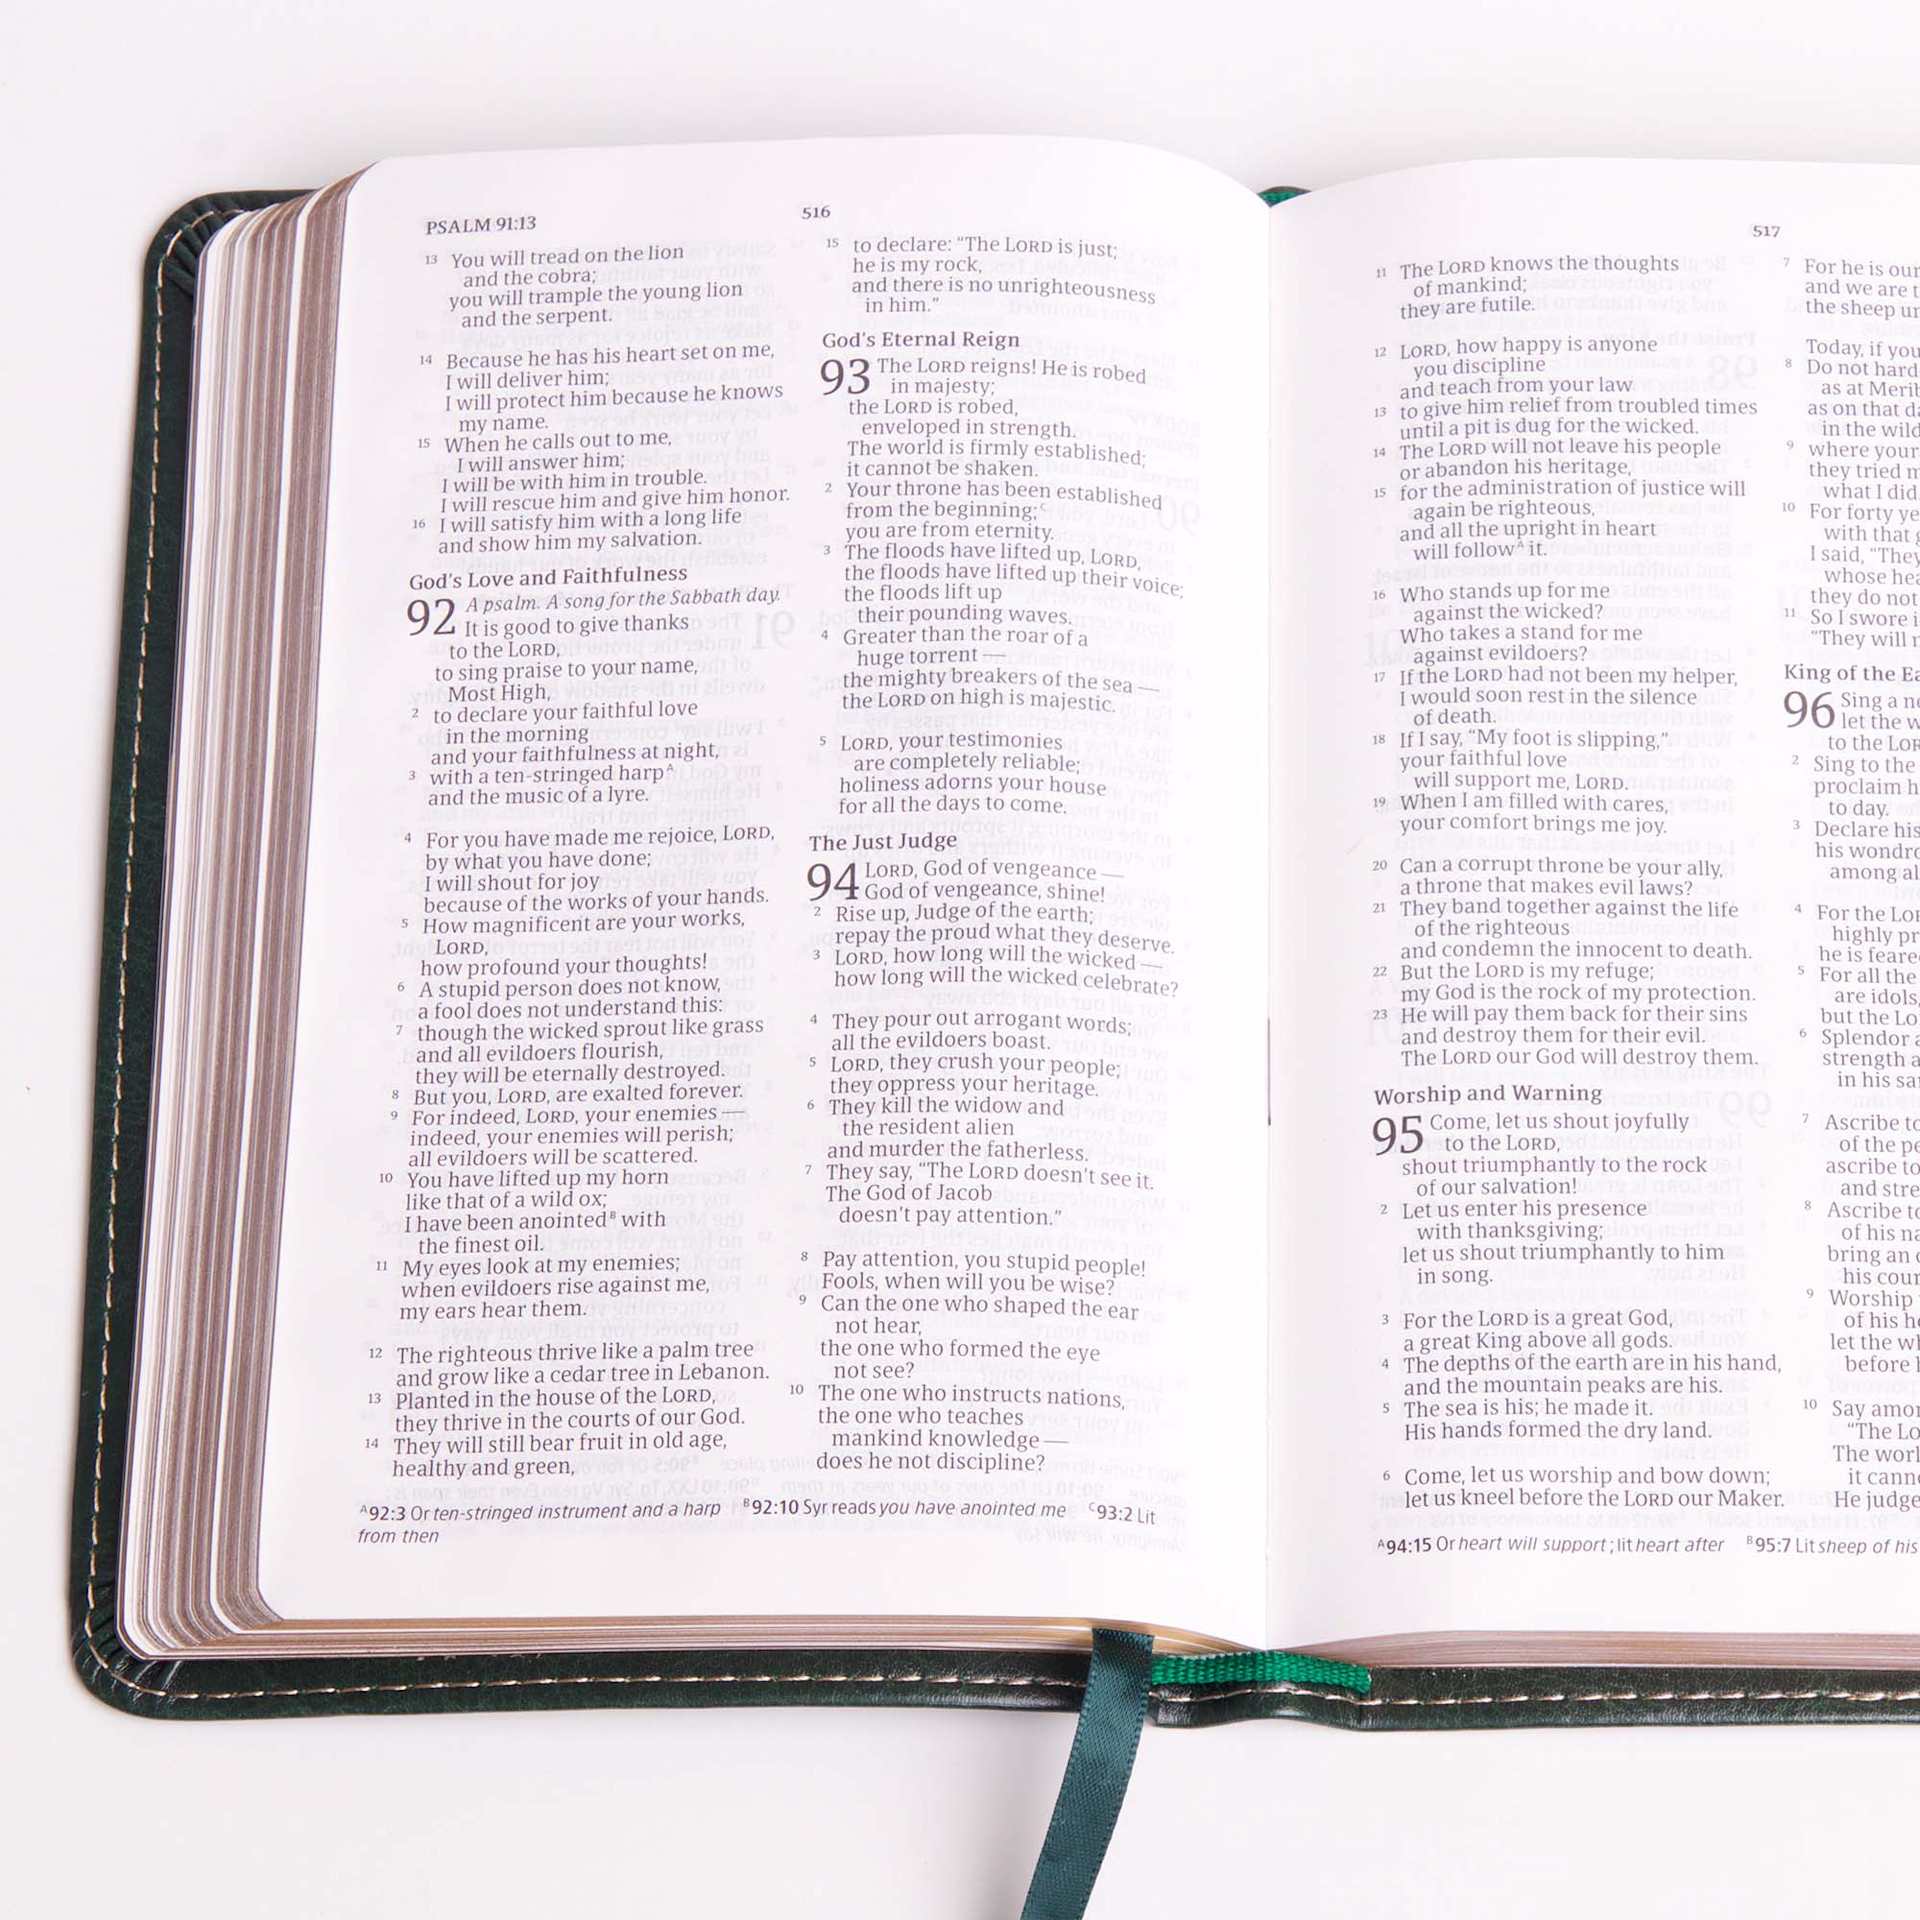 PSALM 91:13
516
13 You will tread on the lion
and the cobra;
you will trample the young lion
and the serpent.
14 Because he has his heart set on me,
I will deliver him;
I will protect him because he knows
my name.
15 When he calls out to me,
I will answer him;
I will be with him in trouble.
I will rescue him and give him honor.
16 I will satisfy him with a long life
and show him my salvation.
God's Love and Faithfulness
92 A psalm. A song for the Sabbath day.
It is good to give thanks
to the LORD,
to sing praise to your name,
Most High,
2 to declare your faithful love
in the morning
and your faithfulness at night,
3 with a ten-stringed harpᴬ
and the music of a lyre.
4 For you have made me rejoice, LORD,
by what you have done;
I will shout for joy
because of the works of your hands.
5 How magnificent are your works,
LORD,
how profound your thoughts!
6 A stupid person does not know,
a fool does not understand this:
7 though the wicked sprout like grass
and all evildoers flourish,
they will be eternally destroyed.
8 But you, LORD, are exalted forever.
9 For indeed, LORD, your enemies —
indeed, your enemies will perish;
all evildoers will be scattered.
10 You have lifted up my horn
like that of a wild ox;
I have been anointedᴮ with
the finest oil.
11 My eyes look at my enemies;
when evildoers rise against me,
my ears hear them.
12 The righteous thrive like a palm tree
and grow like a cedar tree in Lebanon.
13 Planted in the house of the LORD,
they thrive in the courts of our God.
14 They will still bear fruit in old age,
healthy and green,
15 to declare: “The LORD is just;
he is my rock,
and there is no unrighteousness
in him.”
God's Eternal Reign
93 The LORD reigns! He is robed
in majesty;
the LORD is robed,
enveloped in strength.
The world is firmly established;
it cannot be shaken.
2 Your throne has been established
from the beginning;ᶜ
you are from eternity.
3 The floods have lifted up, LORD,
the floods have lifted up their voice;
the floods lift up
their pounding waves.
4 Greater than the roar of a
huge torrent —
the mighty breakers of the sea —
the LORD on high is majestic.
5 LORD, your testimonies
are completely reliable;
holiness adorns your house
for all the days to come.
The Just Judge
94 LORD, God of vengeance —
God of vengeance, shine!
2 Rise up, Judge of the earth;
repay the proud what they deserve.
3 LORD, how long will the wicked —
how long will the wicked celebrate?
4 They pour out arrogant words;
all the evildoers boast.
5 LORD, they crush your people;
they oppress your heritage.
6 They kill the widow and
the resident alien
and murder the fatherless.
7 They say, “The LORD doesn't see it.
The God of Jacob
doesn't pay attention.”
8 Pay attention, you stupid people!
Fools, when will you be wise?
9 Can the one who shaped the ear
not hear,
the one who formed the eye
not see?
10 The one who instructs nations,
the one who teaches
mankind knowledge —
does he not discipline?
ᴬ92:3 Or ten-stringed instrument and a harp ᴮ92:10 Syr reads you have anointed me ᶜ93:2 Lit
from then
517
11 The LORD knows the thoughts
of mankind;
they are futile.
12 LORD, how happy is anyone
you discipline
and teach from your law
13 to give him relief from troubled times
until a pit is dug for the wicked.
14 The LORD will not leave his people
or abandon his heritage,
15 for the administration of justice will
again be righteous,
and all the upright in heart
will followᴬ it.
16 Who stands up for me
against the wicked?
Who takes a stand for me
against evildoers?
17 If the LORD had not been my helper,
I would soon rest in the silence
of death.
18 If I say, “My foot is slipping,”
your faithful love
will support me, LORD.
19 When I am filled with cares,
your comfort brings me joy.
20 Can a corrupt throne be your ally,
a throne that makes evil laws?
21 They band together against the life
of the righteous
and condemn the innocent to death.
22 But the LORD is my refuge;
my God is the rock of my protection.
23 He will pay them back for their sins
and destroy them for their evil.
The LORD our God will destroy them.
Worship and Warning
95 Come, let us shout joyfully
to the LORD,
shout triumphantly to the rock
of our salvation!
2 Let us enter his presence
with thanksgiving;
let us shout triumphantly to him
in song.
3 For the LORD is a great God,
a great King above all gods.
4 The depths of the earth are in his hand,
and the mountain peaks are his.
5 The sea is his; he made it.
His hands formed the dry land.
6 Come, let us worship and bow down;
let us kneel before the LORD our Maker.
7 For he is our
and we are
the sheep
Today, if you
8 Do not
as at
as on that
in the
9 where your
they tried
what I did
10 For forty
with that
I said, “They
whose
they do not
11 So I swore
“They will
King of the
96 Sing a
let the
to the
2 Sing to the
proclaim
to day.
3 Declare his
his
among
4 For the
highly
he is
5 For all the
are idols,
but the
6 Splendor
strength
in his
7 Ascribe to
of the
ascribe to
and
8 Ascribe to
of his
bring an
his
9 Worship
of his
let the
before
10 Say
“The
The
it
He
ᴬ94:15 Or heart will support; lit heart after ᴮ95:7 Lit sheep of his